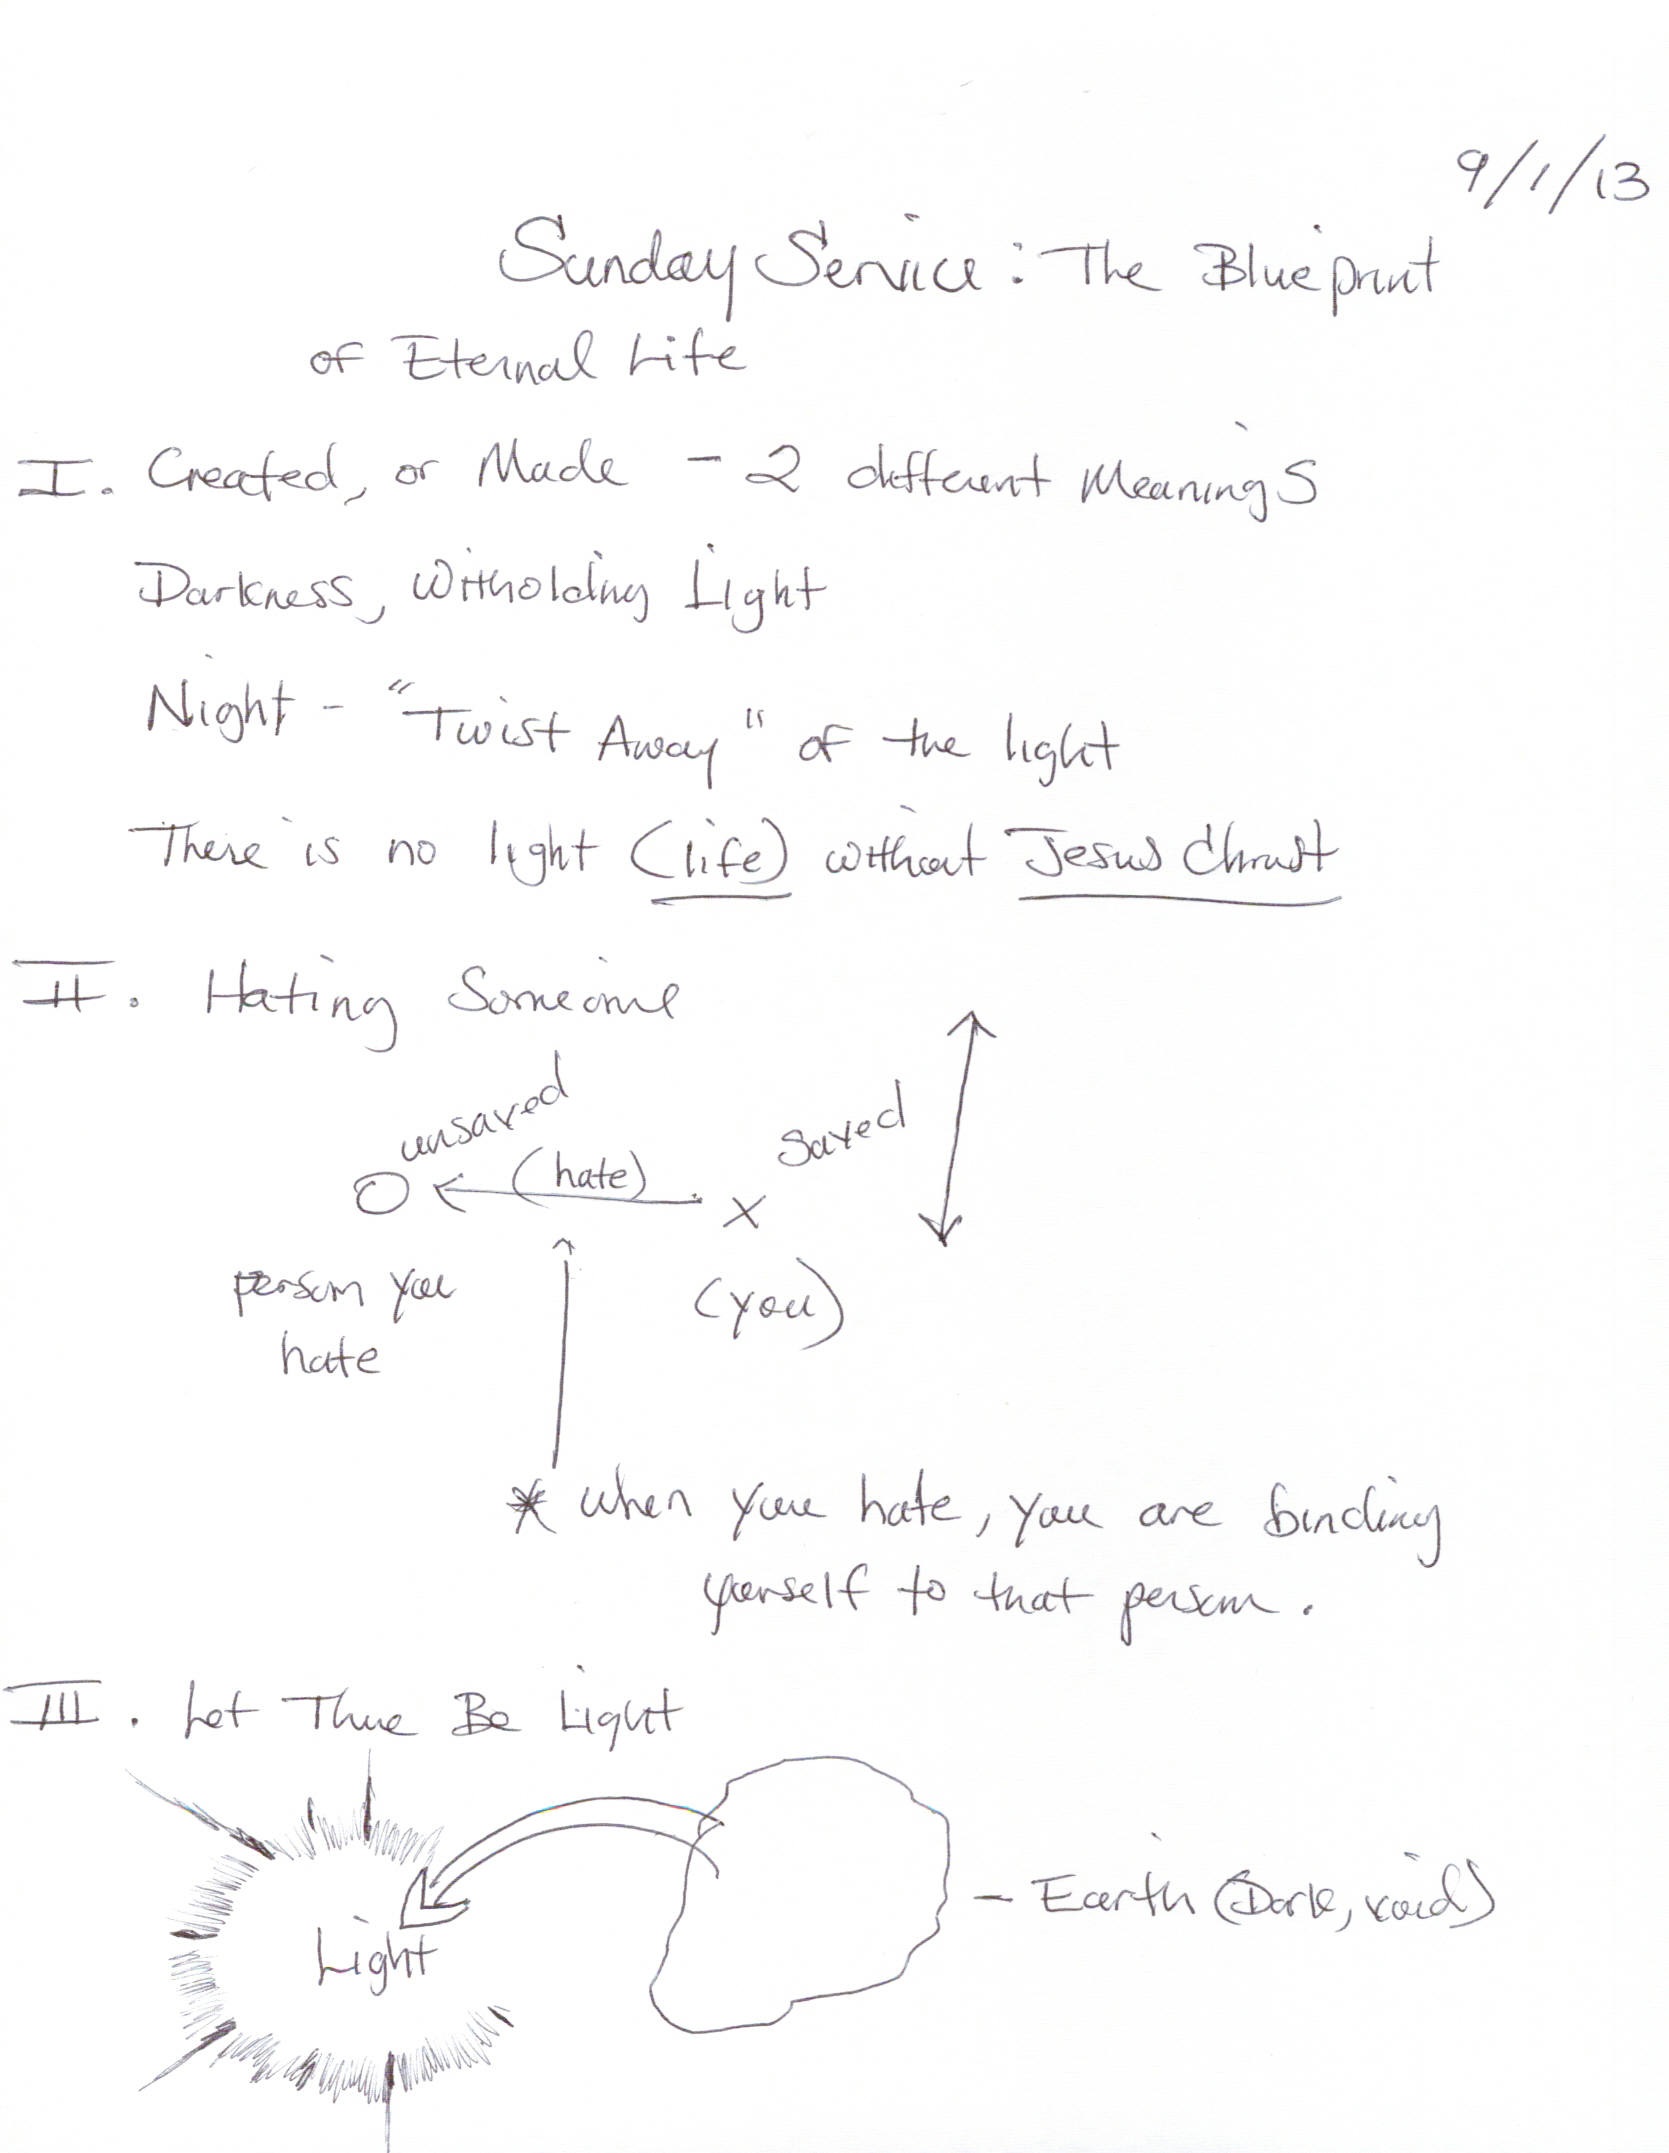 9/1/13
Sunday Service: The Blueprint
of Eternal Life
I. Created, or Made - 2 different Meanings
Darkness, Witholding Light
Night - "Twist Away" of the light
There is no light (life) without Jesus Christ
II. Hating Someone
unsaved
saved
(hate)
O
X
person you
hate
(you)
* when you hate, you are binding
yourself to that person.
III. Let There Be Light
Light
- Earth (Dark, void)